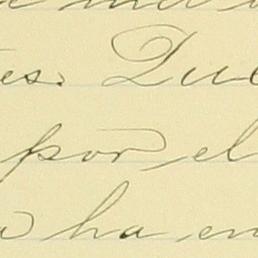 es. Que
por el
a ha en